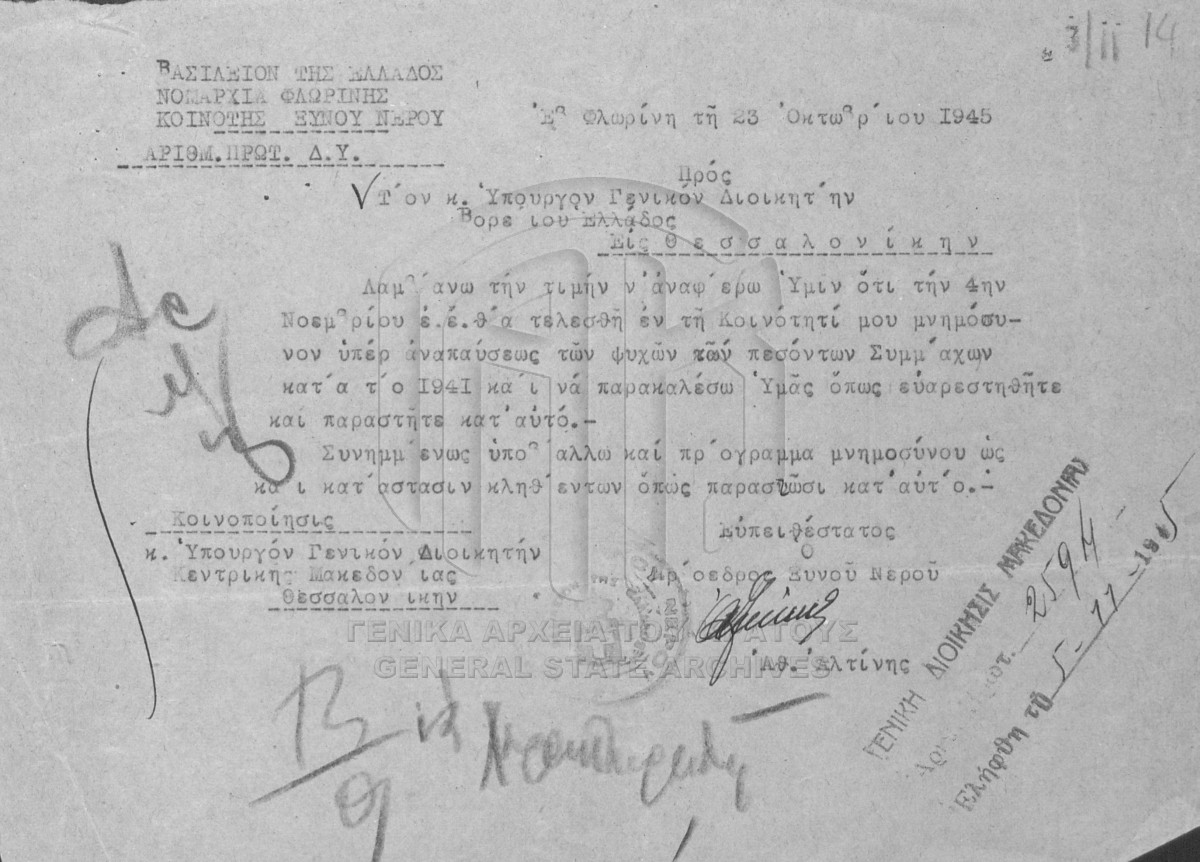 ΒΑΣΙΛΕΙΟΝ ΤΗΣ ΕΛΛΑΔΟΣ
ΝΟΜΑΡΧΙΑ ΦΛΩΡΙΝΗΣ
ΚΟΙΝΟΤΗΣ ΞΥΝΟΥ ΝΕΡΟΥ
ΑΡΙΘΜ.ΠΡΩΤ. Δ.Υ.
Ἐν Φλωρίνη τῆ 23 Ὀκτωβρίου 1945
Πρός
Τόν κ. Ὑπουργόν Γενικόν Διοικητήν
Βορείου Ἑλλάδος
Εἰς Θεσσαλονίκην
Λαμβάνω τήν τιμήν ν'ἀναφέρω Ὑμιν ὅτι τήν 4ην
Νοεμβρίου ἐ.ἔ.θά τελεσθῆ ἐν τῆ Κοινότητί μου μνημόσυ-
νον ὑπέρ ἀναπαύσεως τῶν ψυχῶν τῶν πεσόντων Συμμάχων
κατά τό 1941 καί νά παρακαλέσω Ὑμᾶς ὅπως εὐαρεστηθῆτε
καί παραστῆτε κατ'αὐτό.-
Συνημμένως ὑποβάλλω καί πρόγραμμα μνημοσύνου ὡς
καί κατάστασιν κληθέντων ὅπως παραστῶσι κατ'αὐτό.-
Κοινοποίησις
κ. Ὑπουργόν Γενικόν Διοικητήν
Κεντρικῆς Μακεδονίας
Θεσσαλονίκην
Εὐπειθέστατος
Ο
Πρόεδρος Ξυνοῦ Νεροῦ
Ἀθ. Ἀλτίνης
ΓΕΝΙΚΗ ΔΙΟΙΚΗΣΙΣ ΜΑΚΕΔΟΝΙΑΣ
2594
Ἐλήφθη τῇ 5-11-1945
ΓΕΝΙΚΑ ΑΡΧΕΙΑ ΤΟΥ ΚΡΑΤΟΥΣ
GENERAL STATE ARCHIVES